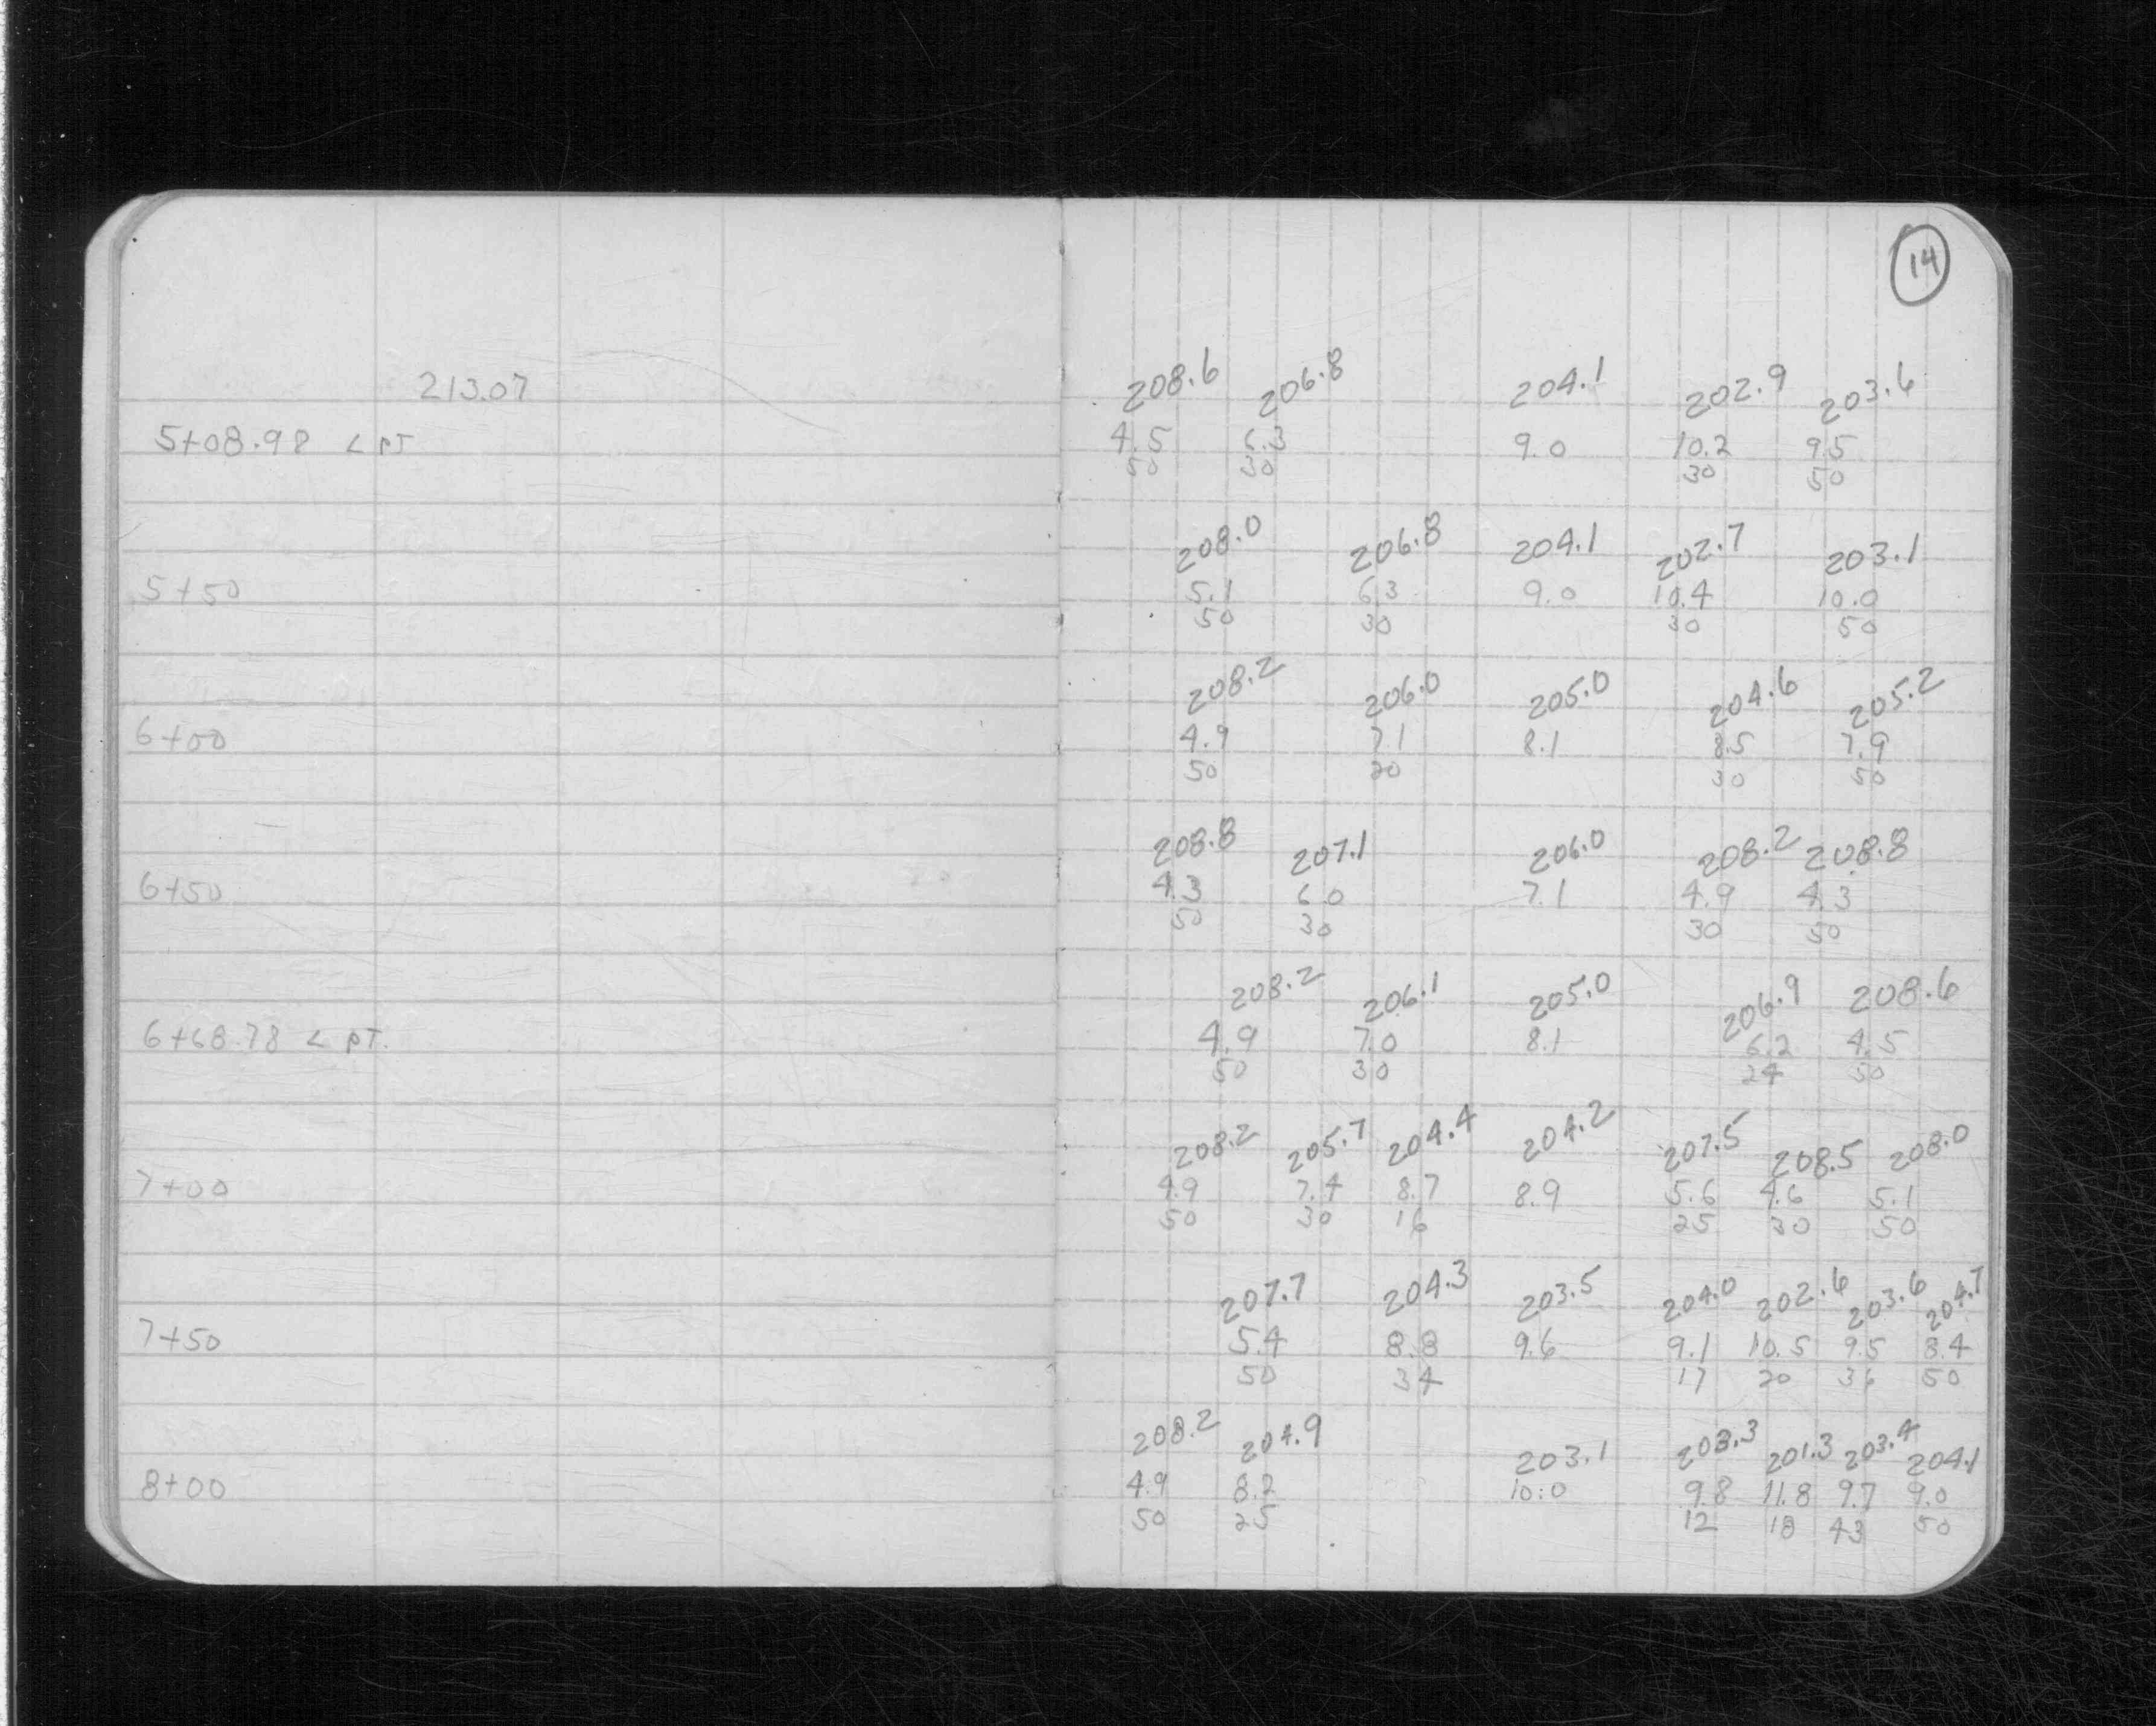 14
213.07
208.6 206.8 204.1 202.9 203.6
5+08.98 < PT 4.5 6.3 9.0 10.2 9.5
50 30 30 50
208.0 206.8 204.1 202.7 203.1
5+50 5.1 6.3 9.0 10.4 10.0
50 30 30 50
208.2 206.0 205.0 204.6 205.2
6+00 4.9 7.1 8.1 8.5 7.9
50 30 30 50
208.8 207.1 206.0 208.2 208.8
6+50 4.3 6.0 7.1 4.9 4.3
50 30 30 50
208.2 206.1 205.0 206.9 208.6
6+68.78 < PT. 4.9 7.0 8.1 6.2 4.5
50 30 24 50
208.2 205.7 204.4 204.2 207.5 208.5 208.0
7+00 4.9 7.4 8.7 8.9 5.6 4.6 5.1
50 30 16 25 30 50
207.7 204.3 203.5 204.0 202.6 203.6 204.7
7+50 5.4 8.8 9.6 9.1 10.5 9.5 8.4
50 34 17 20 36 50
208.2 204.9 203.1 203.3 201.3 203.4 204.1
8+00 4.9 8.2 10.0 9.8 11.8 9.7 9.0
50 25 12 18 43 50